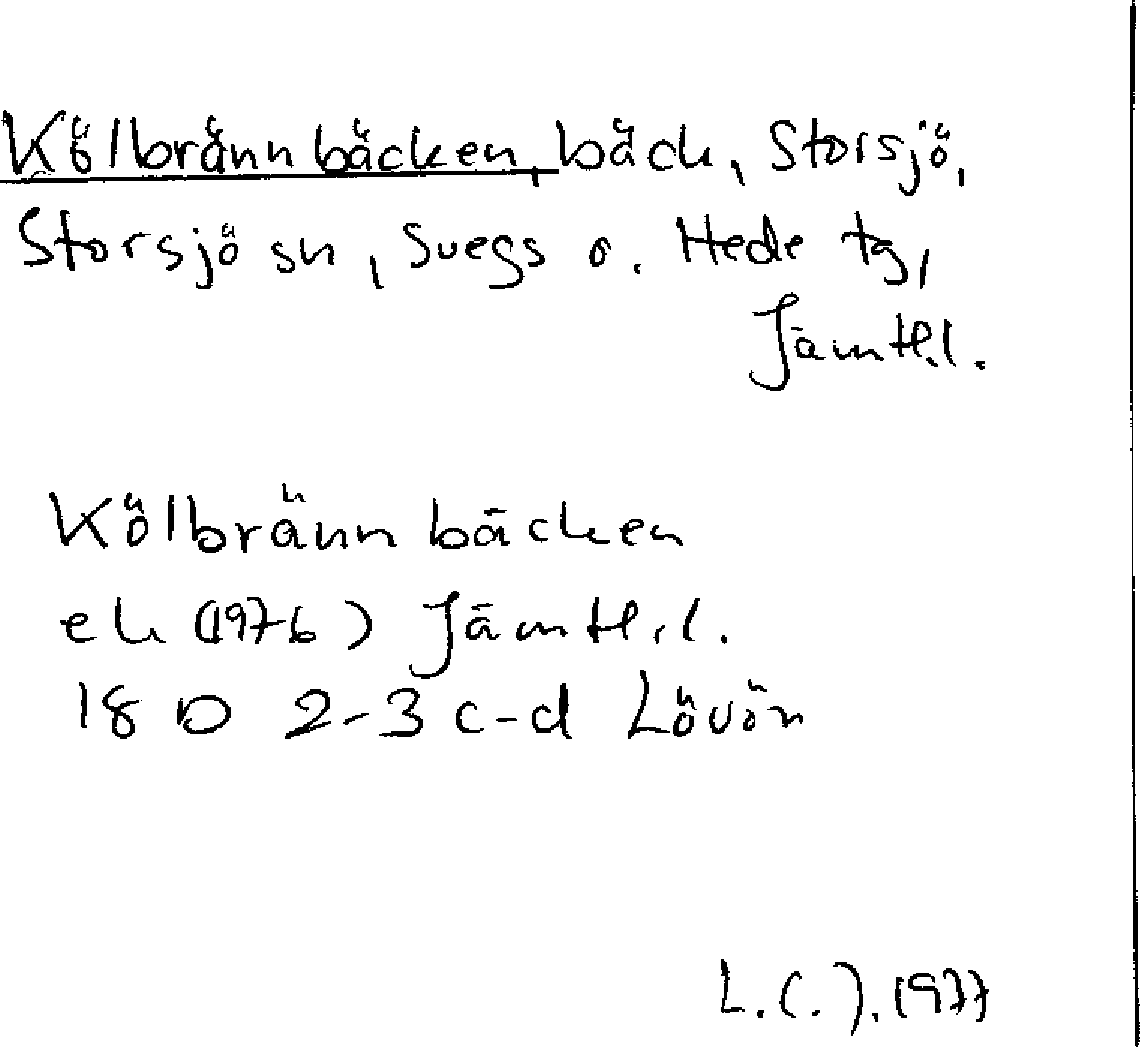 Kölbrännbäcken, bäck, Storsjö,
Storsjö sn, Svegs o. Hede tg,
Jämtl.l.
Kölbrännbäcken
ek (1976) Jämtl.l.
18 D 2-3 c-d Lövön
L.C.J. 1977